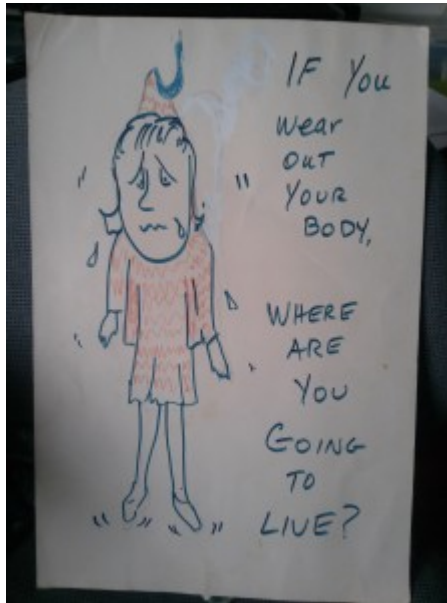 IF You
wear
OUT
YOUR
BODY,
WHERE
ARE
YOU
GOING
TO
LIVE?